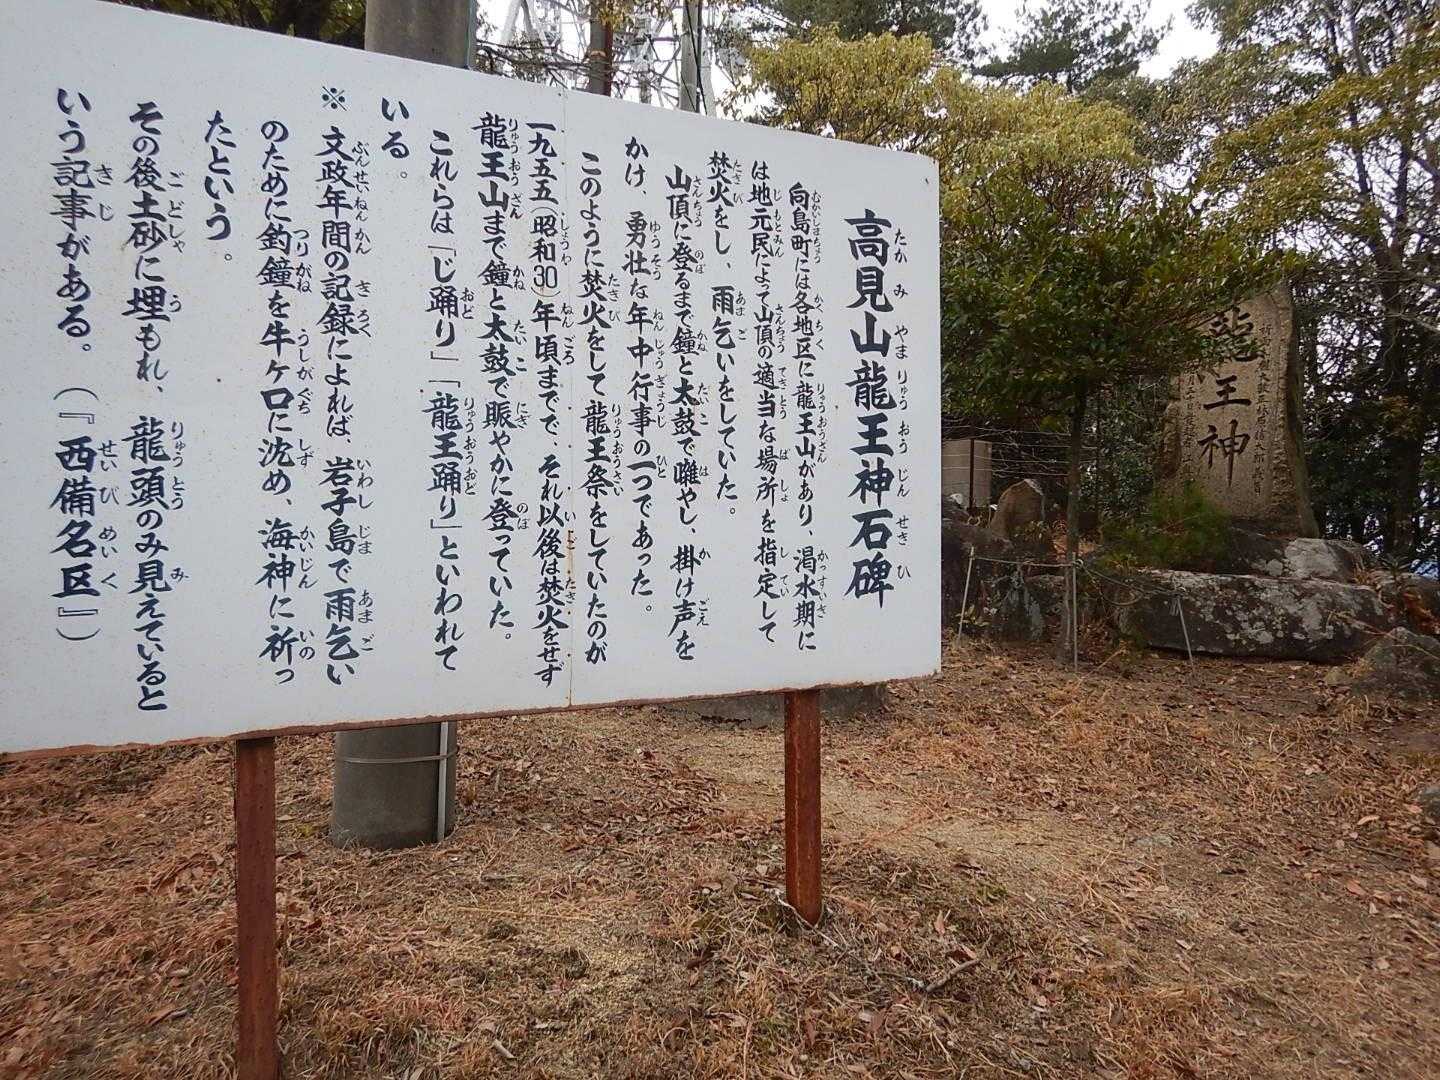 高見山龍王神石碑
向島町には各地区に龍王山があり、渇水期に
は地元民によって山頂の適当な場所を指定して
焚火をし、雨乞いをしていた。
山頂に登るまで鐘と太鼓で囃やし、掛け声を
かけ、勇壮な年中行事の一つであった。
このように焚火をして龍王祭をしていたのが
一九五五(昭和30)年頃までで、それ以後は焚火をせず
龍王山まで鐘と太鼓で賑やかに登っていた。
これらは「じ踊り」「龍王踊り」といわれて
いる。
※文政年間の記録によれば、岩子島で雨乞い
のために釣鐘を牛ヶ口に沈め、海神に祈っ
たという。
その後土砂に埋もれ、龍頭のみ見えていると
いう記事がある。(『西備名区』)
龍王神